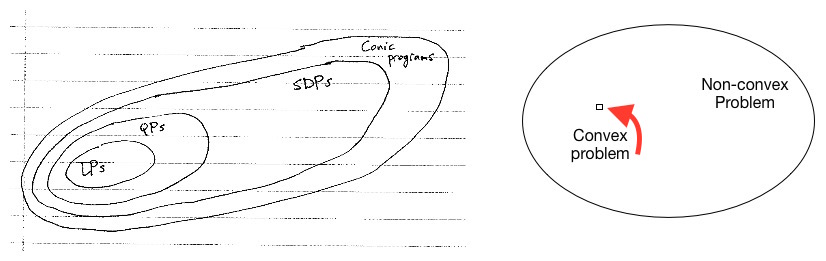 Conic
programs
SDPs
QPs
LPs
Non-convex
Problem
Convex
problem